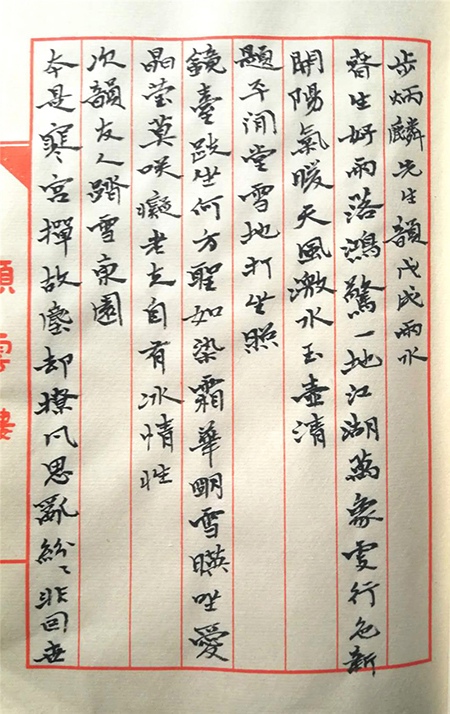 步炳麟先生韻戊戌雨水
生好雨落鴻驚一地江湖萬象更行色新
開陽氣暖天風激水玉壺清
題堂雪地打坐照
鏡臺趺坐何方聖如染霜華明雪暎坐愛
晶莹莫咲癡老夫自有冰情性
次韻友人踏雪東園
本是寒宮撣故塵却撩凡思亂紛〻非回無
雲樓